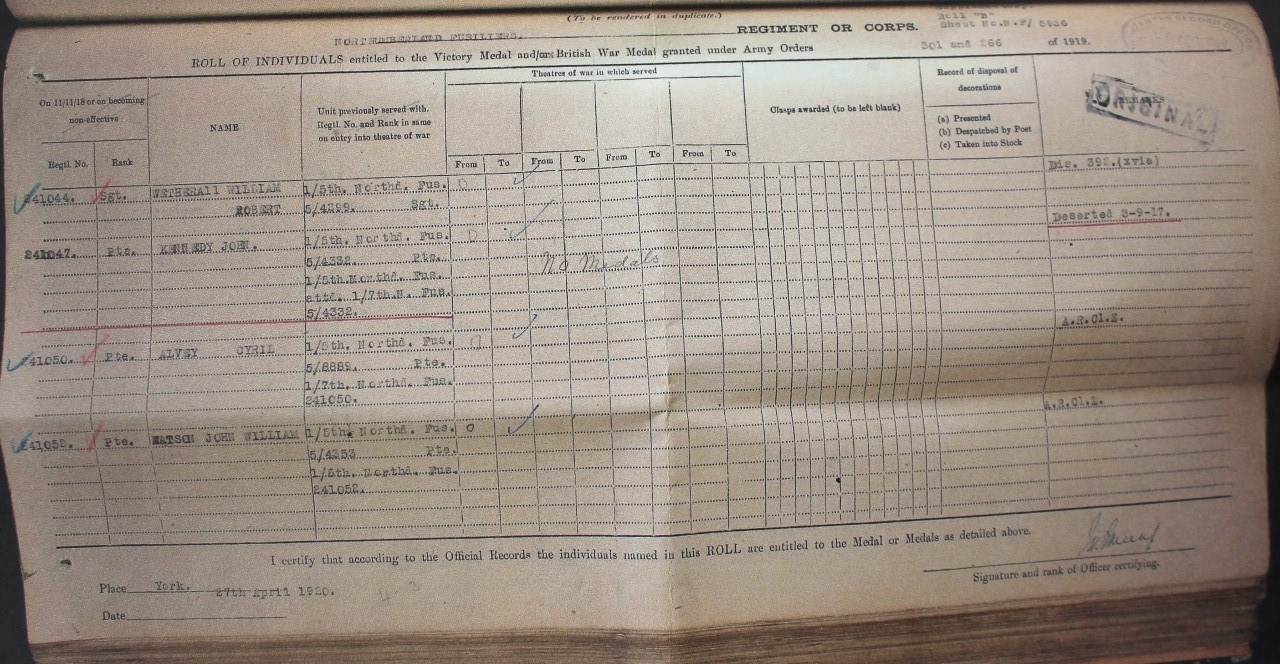 (To be rendered in duplicate.)
Roll "B"
NORTHUMBERLAND FUSILIERS. REGIMENT OR CORPS.
ROLL OF INDIVIDUALS entitled to the Victory Medal and/or British War Medal granted under Army Orders 301 and 266 of 1919.
On 11/11/18 or on becoming non-effective
Regtl. No.
Rank
NAME
Unit previously served with.
Regtl. No. and Rank in same
on entry into theatre of war
Theatres of war in which served
From To From To From To From To
Clasps awarded (to be left blank)
Record of disposal of
decorations
(a) Presented
(b) Despatched by Post
(c) Taken into Stock
REMARKS
ORIGINAL
241044. Sgt. WETHERALL WILLIAM 1/5th. Northd. Fus. Dis. 392.(xvia)
ROBERT 5/4299. Sgt.
241047. Pte. KENNEDY JOHN. 1/5th. Northd. Fus. Deserted 3-9-17.
5/4332. Pte. No Medals
1/5th.Northd. Fus.
attd. 1/7th.N. Fus.
5/4332.
241050. Pte. ALVEY CYRIL 1/5th. Northd. Fus. A.R.Cl.Z.
5/8889. Pte.
1/7th. Northd. Fus.
241050.
241052. Pte. WATSON JOHN WILLIAM 1/5th. Northd. Fus. A.R.Cl.Z.
5/4353 Pte.
1/5th. Northd. Fus.
241052.
I certify that according to the Official Records the individuals named in this ROLL are entitled to the Medal or Medals as detailed above.
Place York. 27th April 1920.
Date
Signature and rank of Officer certifying.